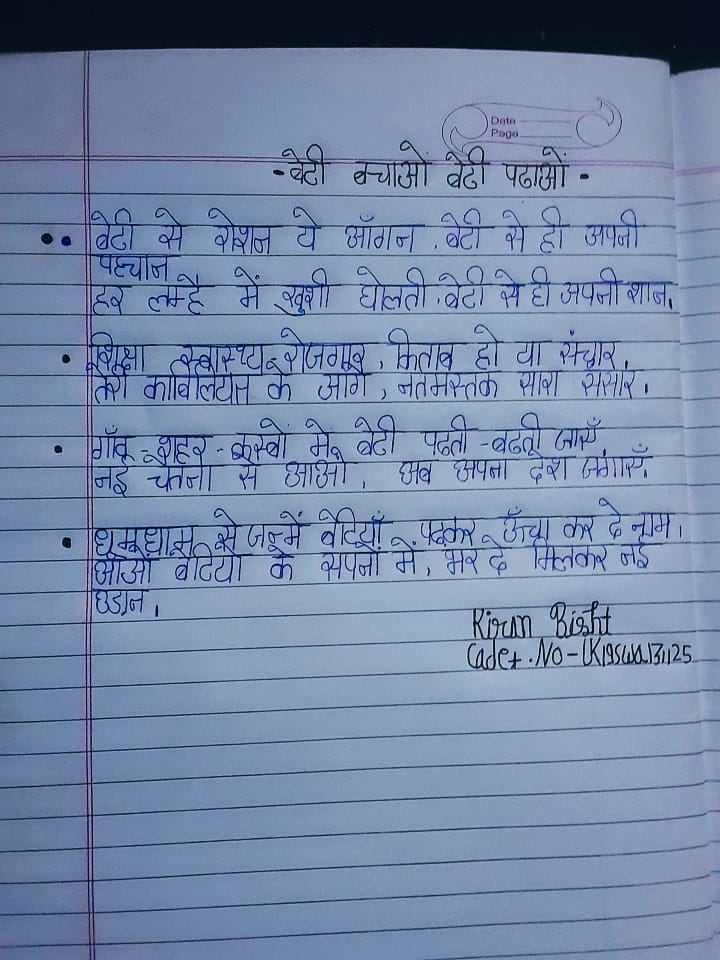 Date
Page
- बेटी बचाओं बेटी पढाओं -
बेटी से रोशन ये आँगन, बेटी से ही अपनी
पहचान
हर लम्है में खुशी घोलती, बेटी से ही अपनी शान,
शिक्षा स्वास्थ्य रोजगार, किताब हो या संचार,
तेरी काबिलियत के आगे, नतमस्तक सारा संसार,
गाँव - शहर - कस्बों में, बेटी पढती - बढती जाएँ,
नई चेतना से आओ, अब अपना देश जगाएँ
धूमधाम से जन्में बेटियाँ, पढकर ऊँचा कर दे नाम,
आओ बेटियों के सपनों में, भर दे मिलकर नई
उडान,
Kiran Bisht
Cadet.No-UK19SWA131125